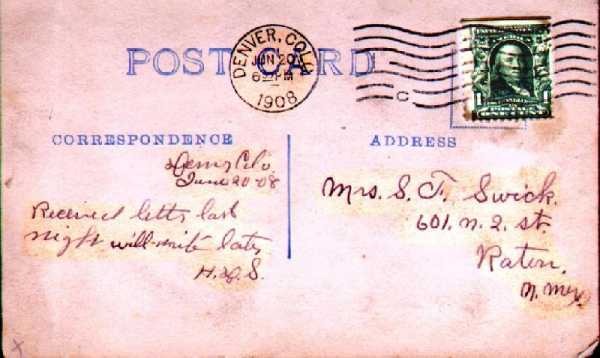 POST CARD
DENVER, COLO.
JUN 20
6 PM
1908
C
1
CORRESPONDENCE
ADDRESS
Denv Colo
June 20-08
Received letts last
night will write later
H.G.S.
Mrs. S. T. Swick.
601. N. 2. st.
Raton,
N. Mex